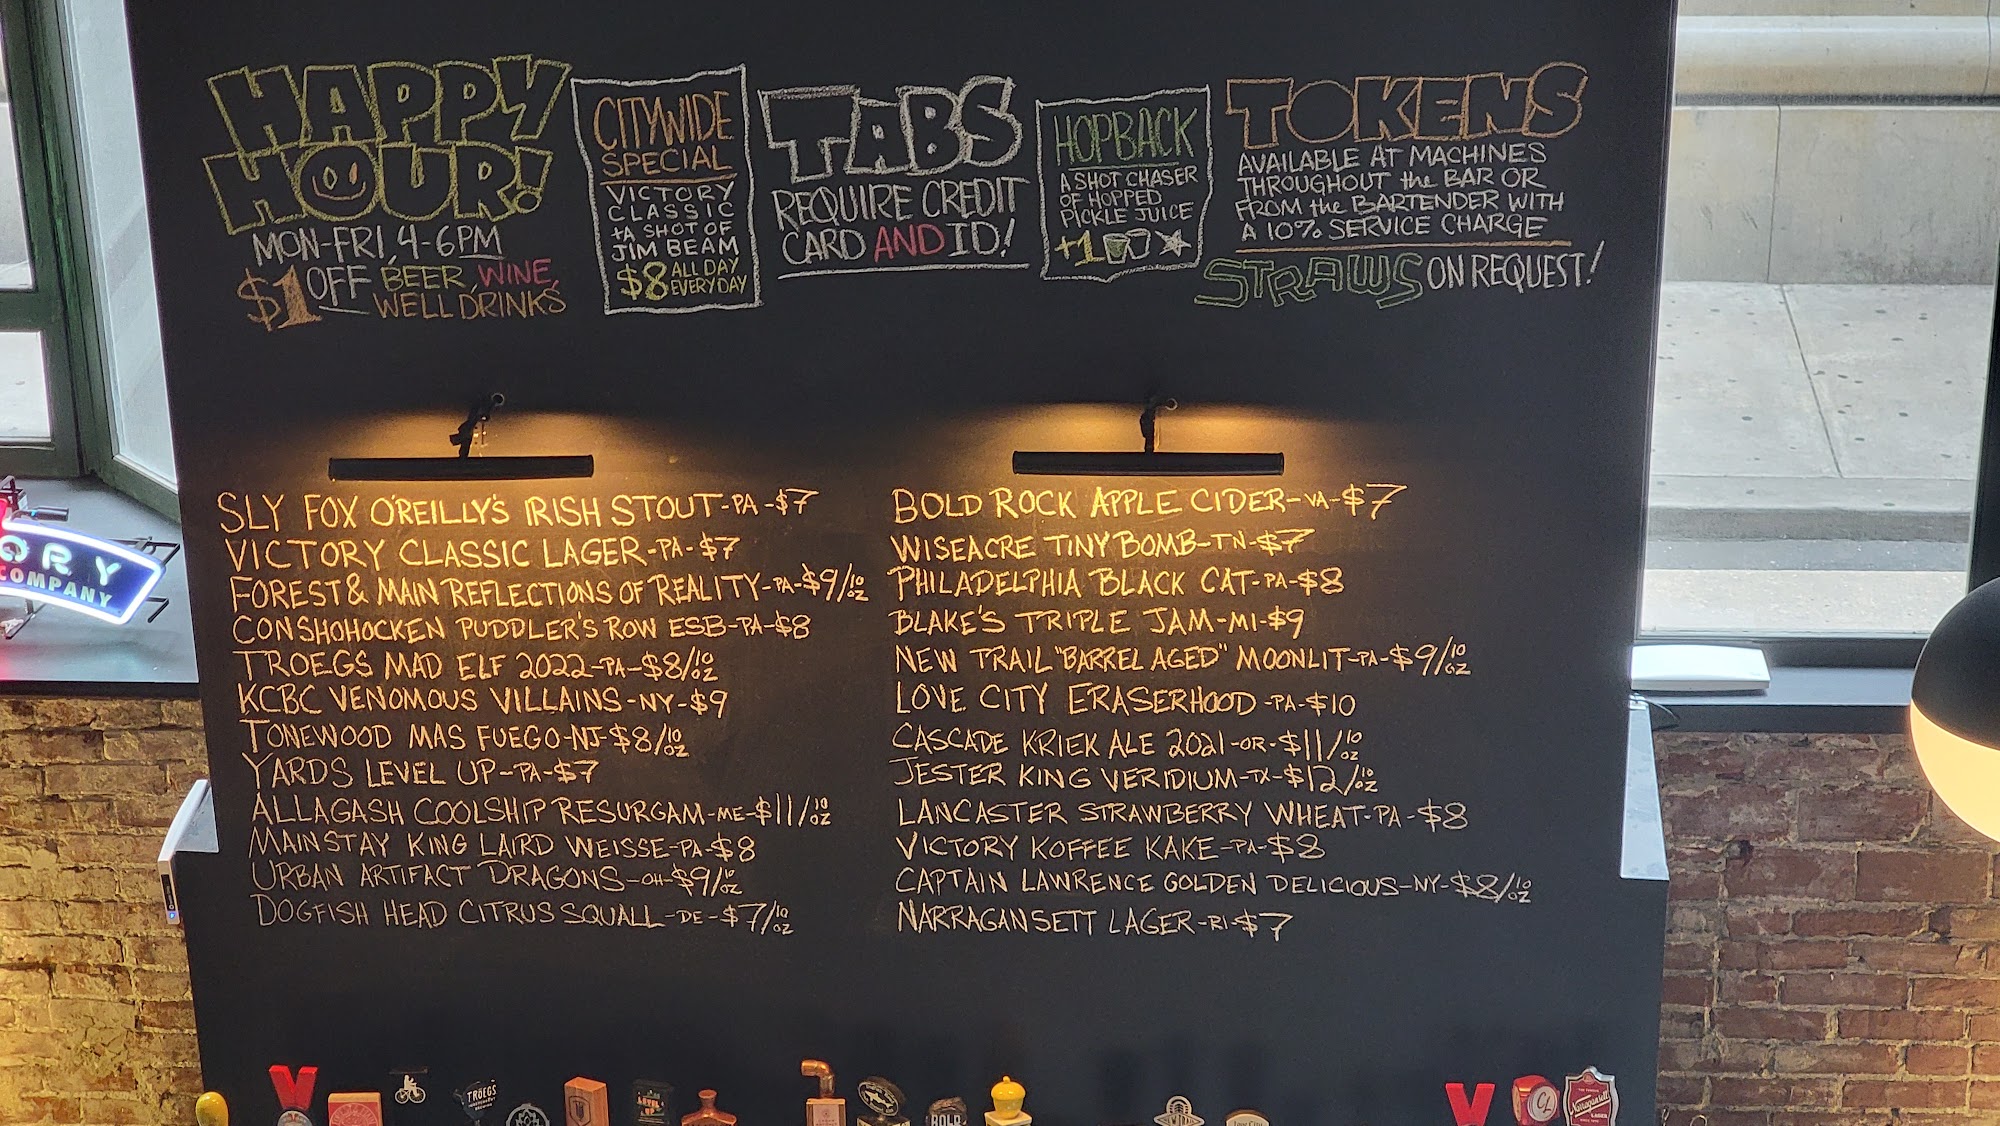 HAPPY
HOUR!
MON-FRI, 4-6PM
$1 OFF BEER, WINE,
WELL DRINKS
CITYWIDE
SPECIAL
VICTORY
CLASSIC
+A SHOT OF
JIM BEAM
$8 ALL DAY
EVERY DAY
TABS
REQUIRE CREDIT
CARD AND ID!
HOPBACK
A SHOT CHASER
OF HOPPED
PICKLE JUICE
+1
TOKENS
AVAILABLE AT MACHINES
THROUGHOUT the BAR OR
FROM the BARTENDER WITH
A 10% SERVICE CHARGE
STRAWS ON REQUEST!
SLY FOX O'REILLY'S IRISH STOUT-PA-$7
VICTORY CLASSIC LAGER-PA-$7
FOREST & MAIN REFLECTIONS OF REALITY-PA-$9/10 OZ
CONSHOHOCKEN PUDDLER'S ROW ESB-PA-$8
TROEGS MAD ELF 2022-PA-$8/10 OZ
KCBC VENOMOUS VILLAINS-NY-$9
TONEWOOD MAS FUEGO-NJ-$8/10 OZ
YARDS LEVEL UP-PA-$7
ALLAGASH COOLSHIP RESURGAM-ME-$11/10 OZ
MAINSTAY KING LAIRD WEISSE-PA-$8
URBAN ARTIFACT DRAGONS-OH-$9/10 OZ
DOGFISH HEAD CITRUS SQUALL-DE-$7/10 OZ
BOLD ROCK APPLE CIDER-VA-$7
WISEACRE TINY BOMB-TN-$7
PHILADELPHIA BLACK CAT-PA-$8
BLAKE'S TRIPLE JAM-MI-$9
NEW TRAIL "BARREL AGED" MOONLIT-PA-$9/10 OZ
LOVE CITY ERASERHOOD-PA-$10
CASCADE KRIEK ALE 2021-OR-$11/10 OZ
JESTER KING VERIDIUM-TX-$12/10 OZ
LANCASTER STRAWBERRY WHEAT-PA-$8
VICTORY KOFFEE KAKE-PA-$8
CAPTAIN LAWRENCE GOLDEN DELICIOUS-NY-$8/10 OZ
NARRAGANSETT LAGER-RI-$7
ORY
COMPANY
TRÖEGS
LEVEL UP
BOLD
CL
Narragansett
LAGER